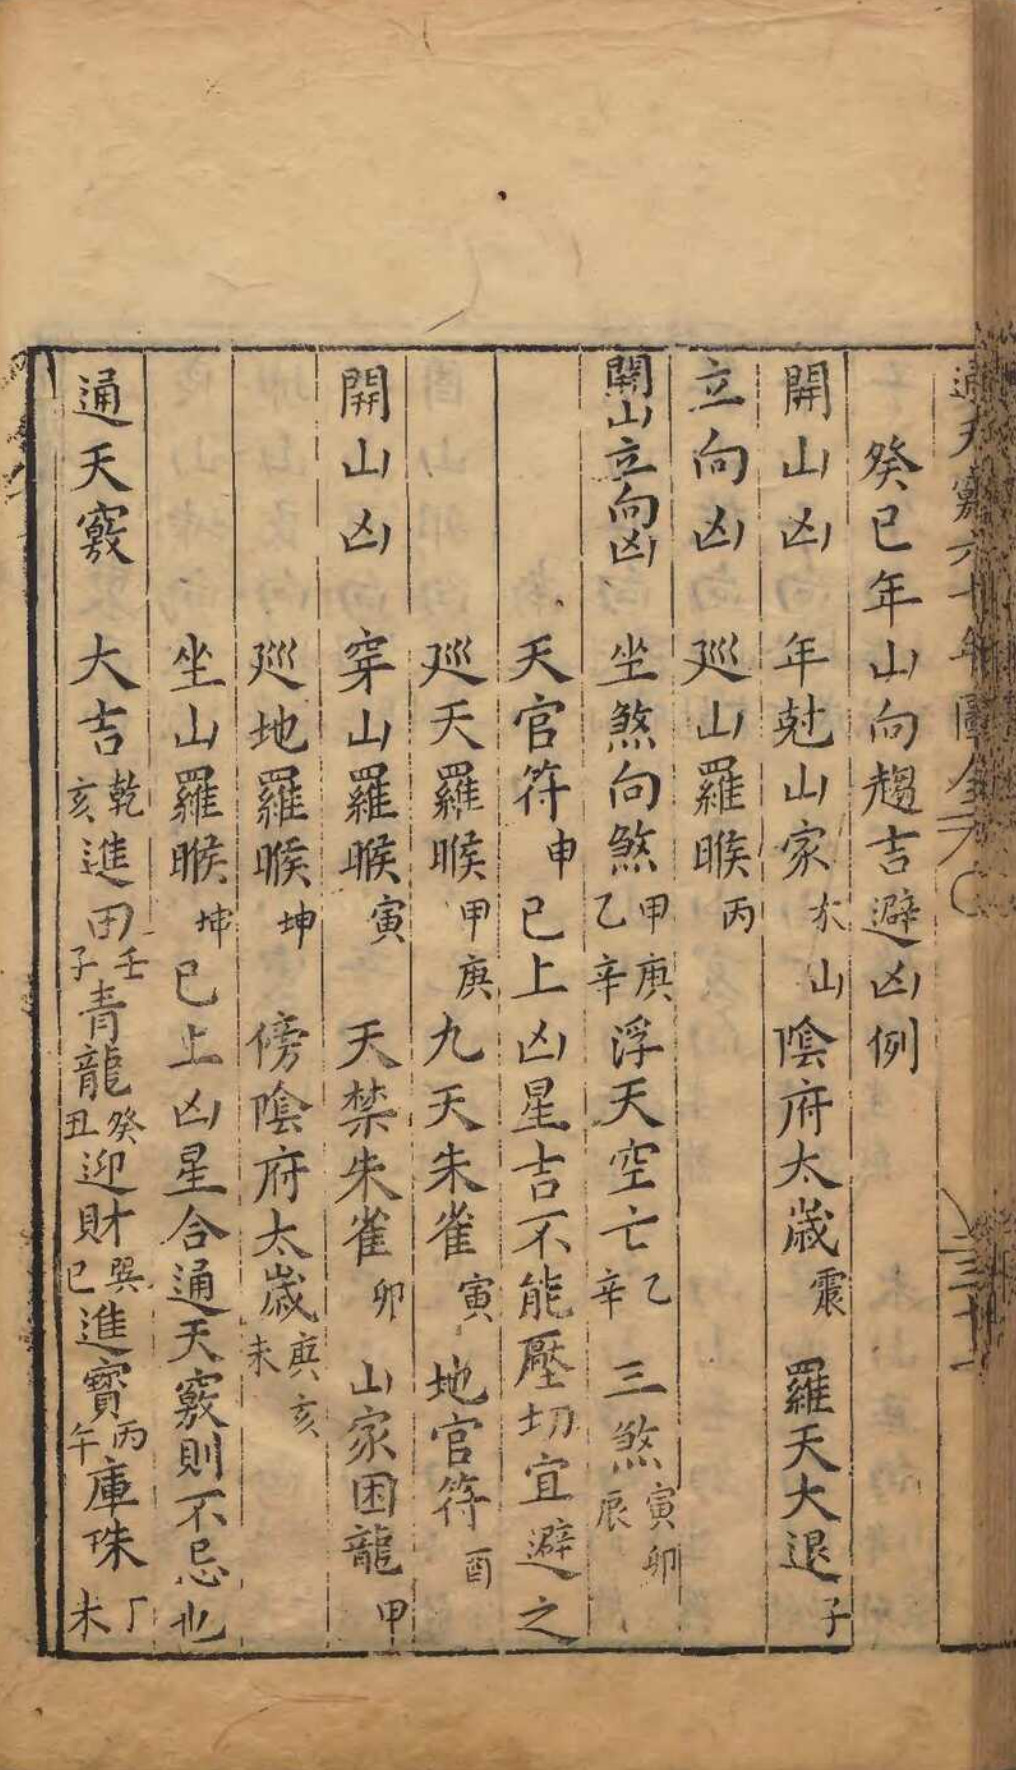 通天竅六十年圖全元
三十一
癸巳年山向趨吉避凶例
開山凶 年尅山家水山 陰府太歲震 羅天大退子
立向凶 廵山羅睺丙
開山立向凶 坐煞向煞甲庚乙辛浮天空亡乙辛 三煞寅卯辰
天官符申已上凶星吉不能壓切宜避之
廵天羅睺甲庚九天朱雀寅 地官符酉
開山凶 穿山羅睺寅 天禁朱雀卯 山家困龍甲
廵地羅睺坤 傍陰府太歲庚亥未
坐山羅睺坤已上凶星合通天竅則不忌也
通天竅 大吉乾亥進田壬子青龍癸丑迎財巽巳進寶丙午庫珠丁未